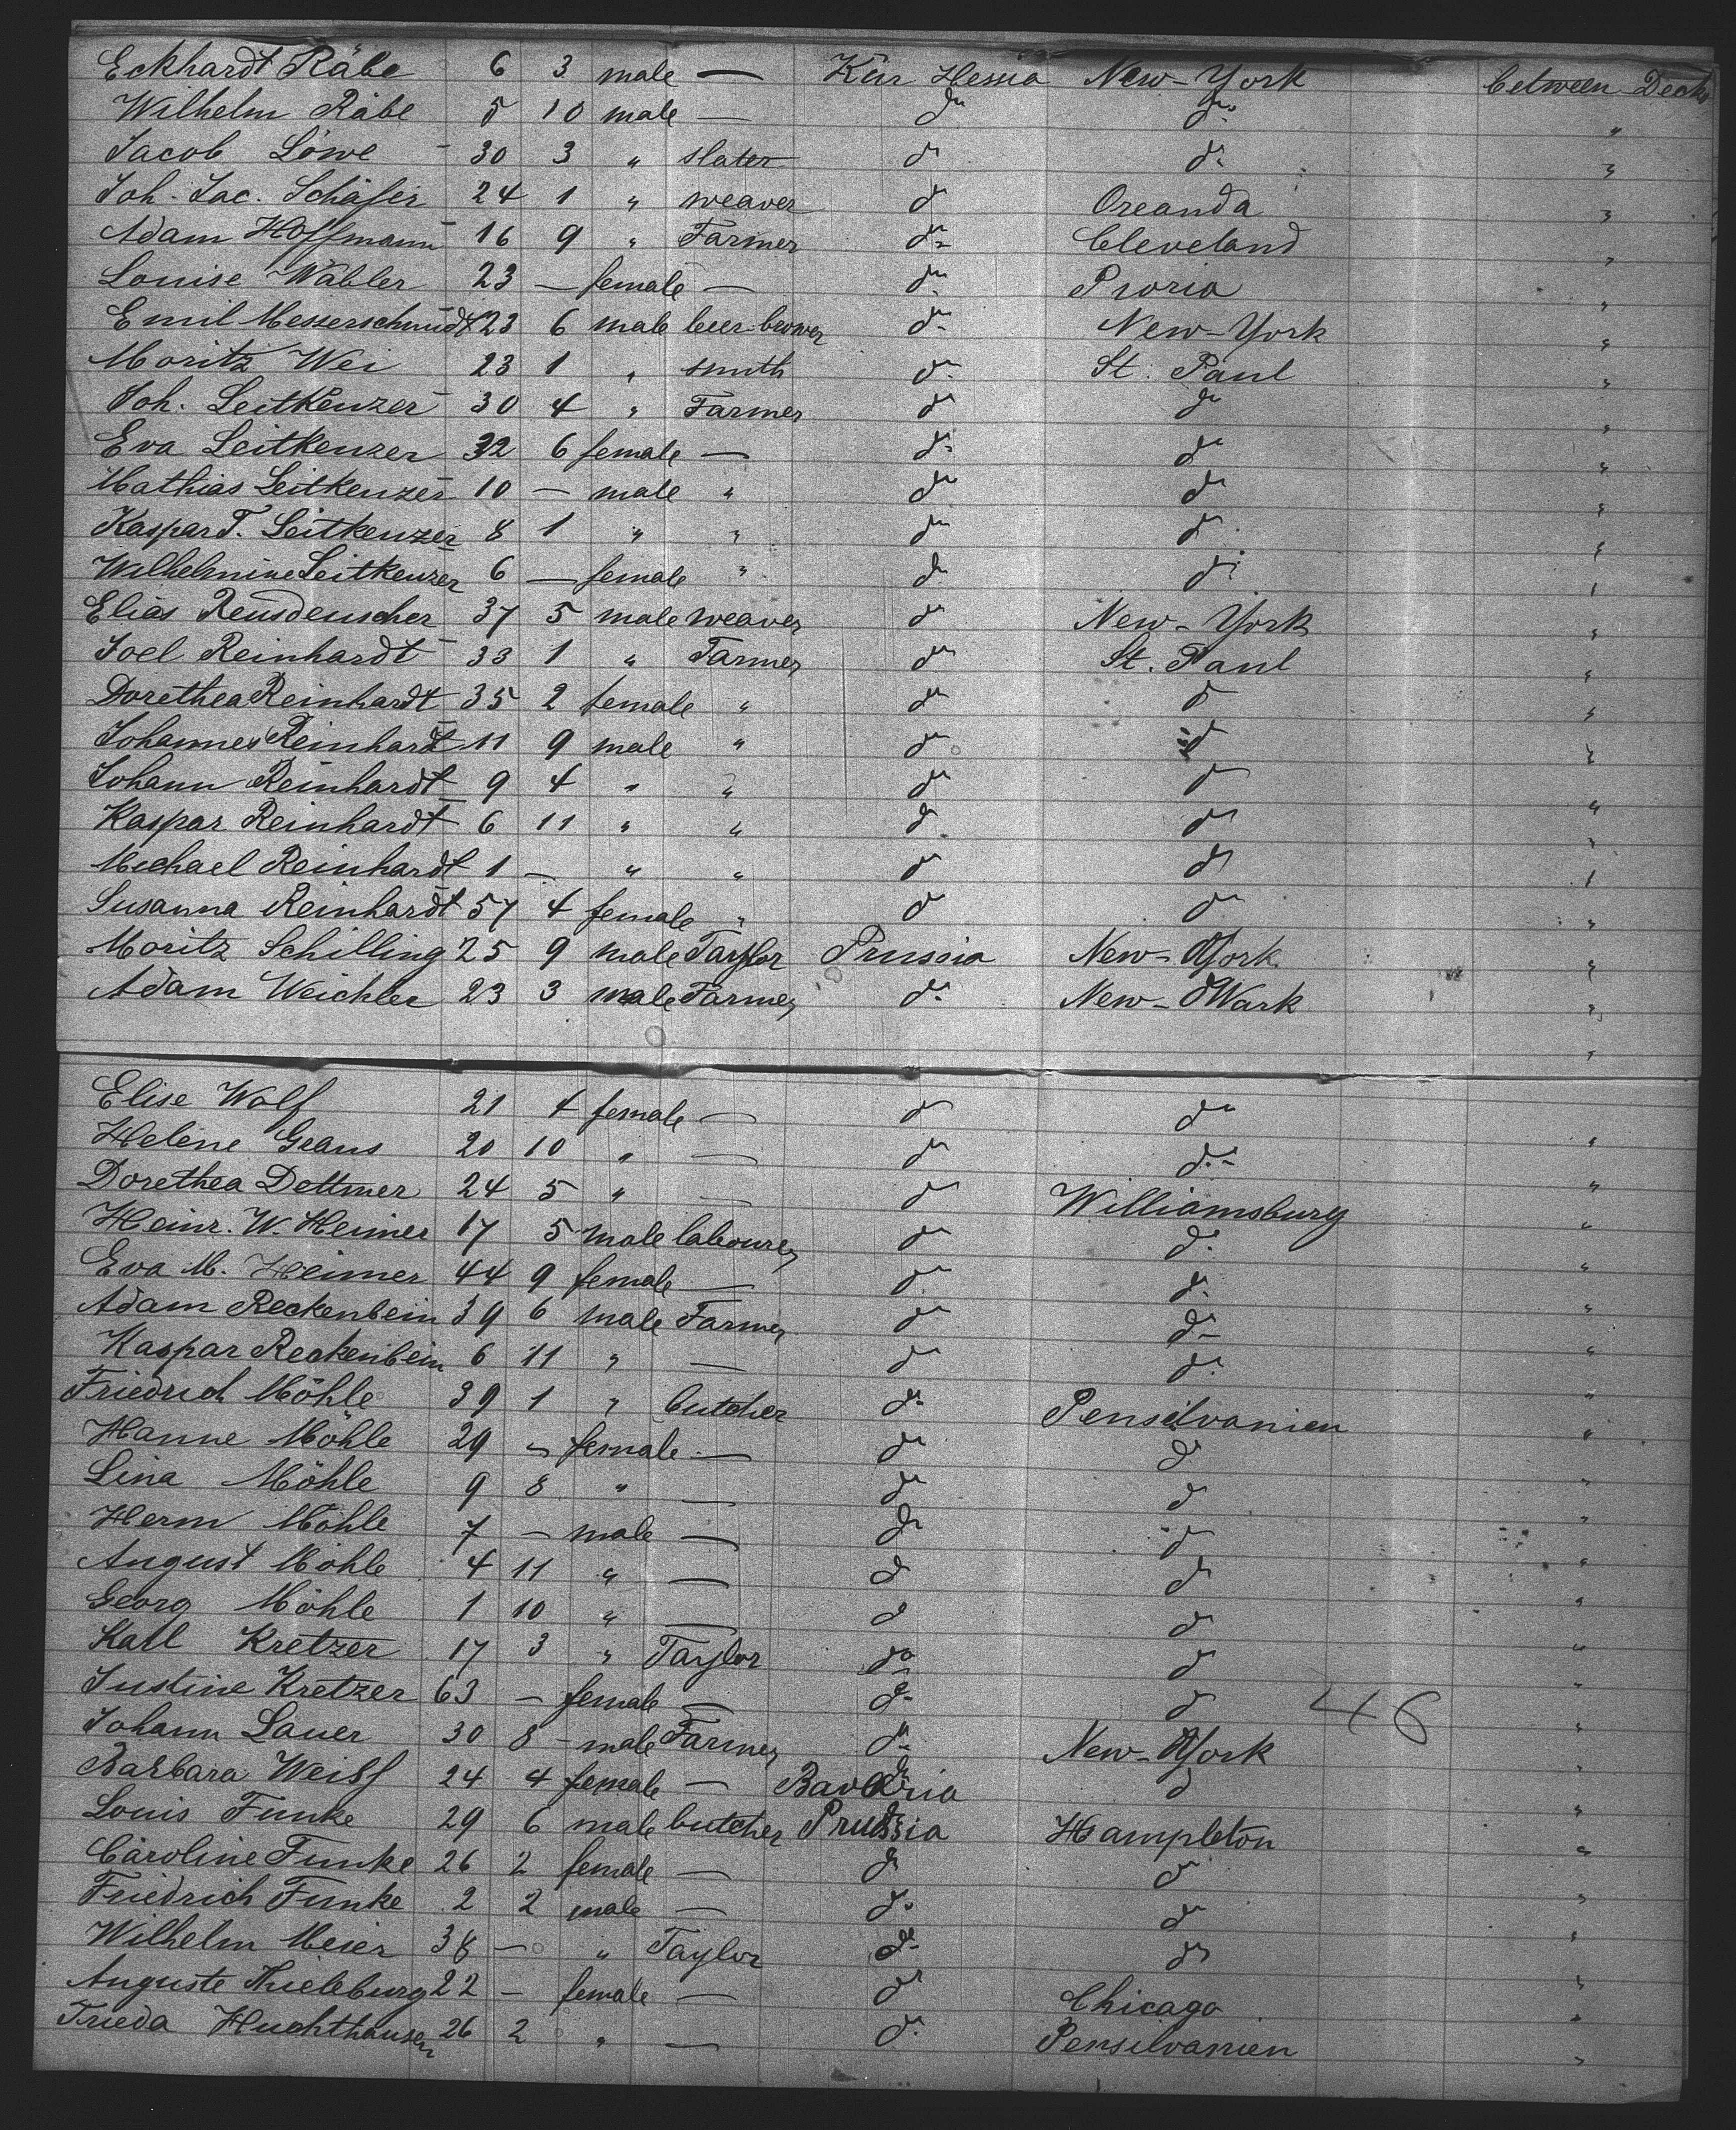 Eckhardt Räbe 6 3 male — Kur Hessia New-York between Decks
Wilhelm Räbe 5 10 male — do do "
Jacob Löwe 30 3 " slater do do "
Joh. Jac. Schäfer 24 1 " weaver do Oreanda "
Adam Hoffmann 16 9 " Farmer do Cleveland "
Louise Wäbler 23 — female — do Proria "
Emil Messerschmidt 23 6 male beer-brower do New-York "
Moritz Wei 23 1 " smith do St. Paul "
Joh. Leitkenzer 30 4 " Farmer do do "
Eva Leitkenzer 32 6 female — do do "
Mathias Leitkenzer 10 — male " do do "
Kaspar T. Leitkenzer 8 1 " " do do "
Wilhelmine Leitkenzer 6 — female " do do "
Elias 37 5 male weaver do New-York "
Joel Reinhardt 33 1 " Farmer do St. Paul "
Dorethea Reinhardt 35 2 female " do do "
Johannes Reinhardt 11 9 male " do do "
Johann Reinhardt 9 4 " " do do "
Kaspar Reinhardt 6 11 " " do do "
Michael Reinhardt 1 — " " do do "
Susanna Reinhardt 57 4 female " do do "
Moritz Schilling 25 9 male Taylor Prussia New-York "
Adam Weichler 23 3 male Farmer do New-Wark "
"
Elise Wolf 21 4 female — do do "
Helene Geans 20 10 " — do do "
Dorethea Dettmer 24 5 " — do Williamsburg "
Heinr. W. Heimer 17 5 male labourer do do "
Eva M. Heimer 44 9 female — do do "
Adam Reckenbein 39 6 male Farmer do do "
Kaspar Reckenbein 6 11 " — do do "
Friedrich Möhle 39 1 " butcher do Pensilvanien "
Hanne Möhle 29 — female — do do "
Lina Möhle 9 8 " — do do "
Herm Möhle 7 — male — do do "
August Möhle 4 11 " — do do "
Georg Möhle 1 10 " — do do "
Karl Kretzer 17 3 " Taylor do do "
Justine Kretzer 63 — female — do do 46 "
Johann Lauer 30 8 — male Farmer do New-York "
Barbara Weiss 24 4 female — Bavaria do "
Louis Funke 29 6 male butcher Prussia Hampleton "
Caroline Funke 26 2 female — do do "
Friedrich Funke 2 2 male — do do "
Wilhelm Meier 38 — " Taylor do do "
Auguste Thieleburg 22 — female — do Chicago "
Frieda Huchthausen 26 2 " — do Pensilvanien "